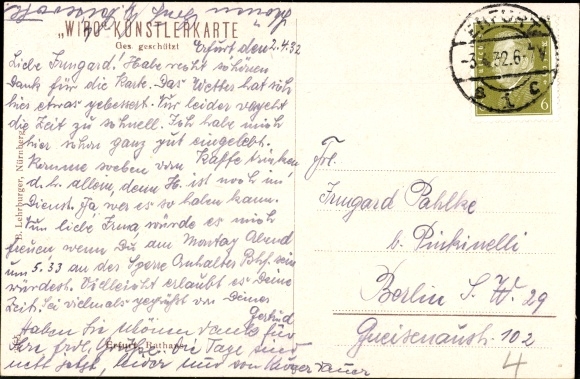 „WIRO“ KÜNSTLERKARTE
Ges. geschützt
Erfurt den 2.4.32
Liebe Irmgard! Habe recht schönen
Dank für die Karte. Das Wetter hat sich
hier etwas gebessert. Nur leider vergeht
die Zeit zu schnell. Ich habe mich
hier schon ganz gut eingelebt.
Komme soeben vom Kaffe trinken,
d. h. allein, denn H. ist noch im
Dienst. Ja wer es so haben kann.
Nun liebe Irma, würde es mich
freuen wenn Du, am Montag Abend
um 5.33 an der Sperre Anhalter Bhf. sein
würdest. Vielleicht erlaubt es Deine
Zeit. Sei vielmals gegrüßt von Deiner
Gertrud
Haben Sie schönen Dank für
Ihre frdl. Die Tage sind
nett jetzt, leider nur von kurzer Dauer
B. Lehrburger, Nürnberg
Erfurt, Rathaus
ERFURT
32.6
6
Frl.
Irmgard Pahlke
b. Pinkinelli
Berlin S. W. 29
Gneisenaustr. 102
4